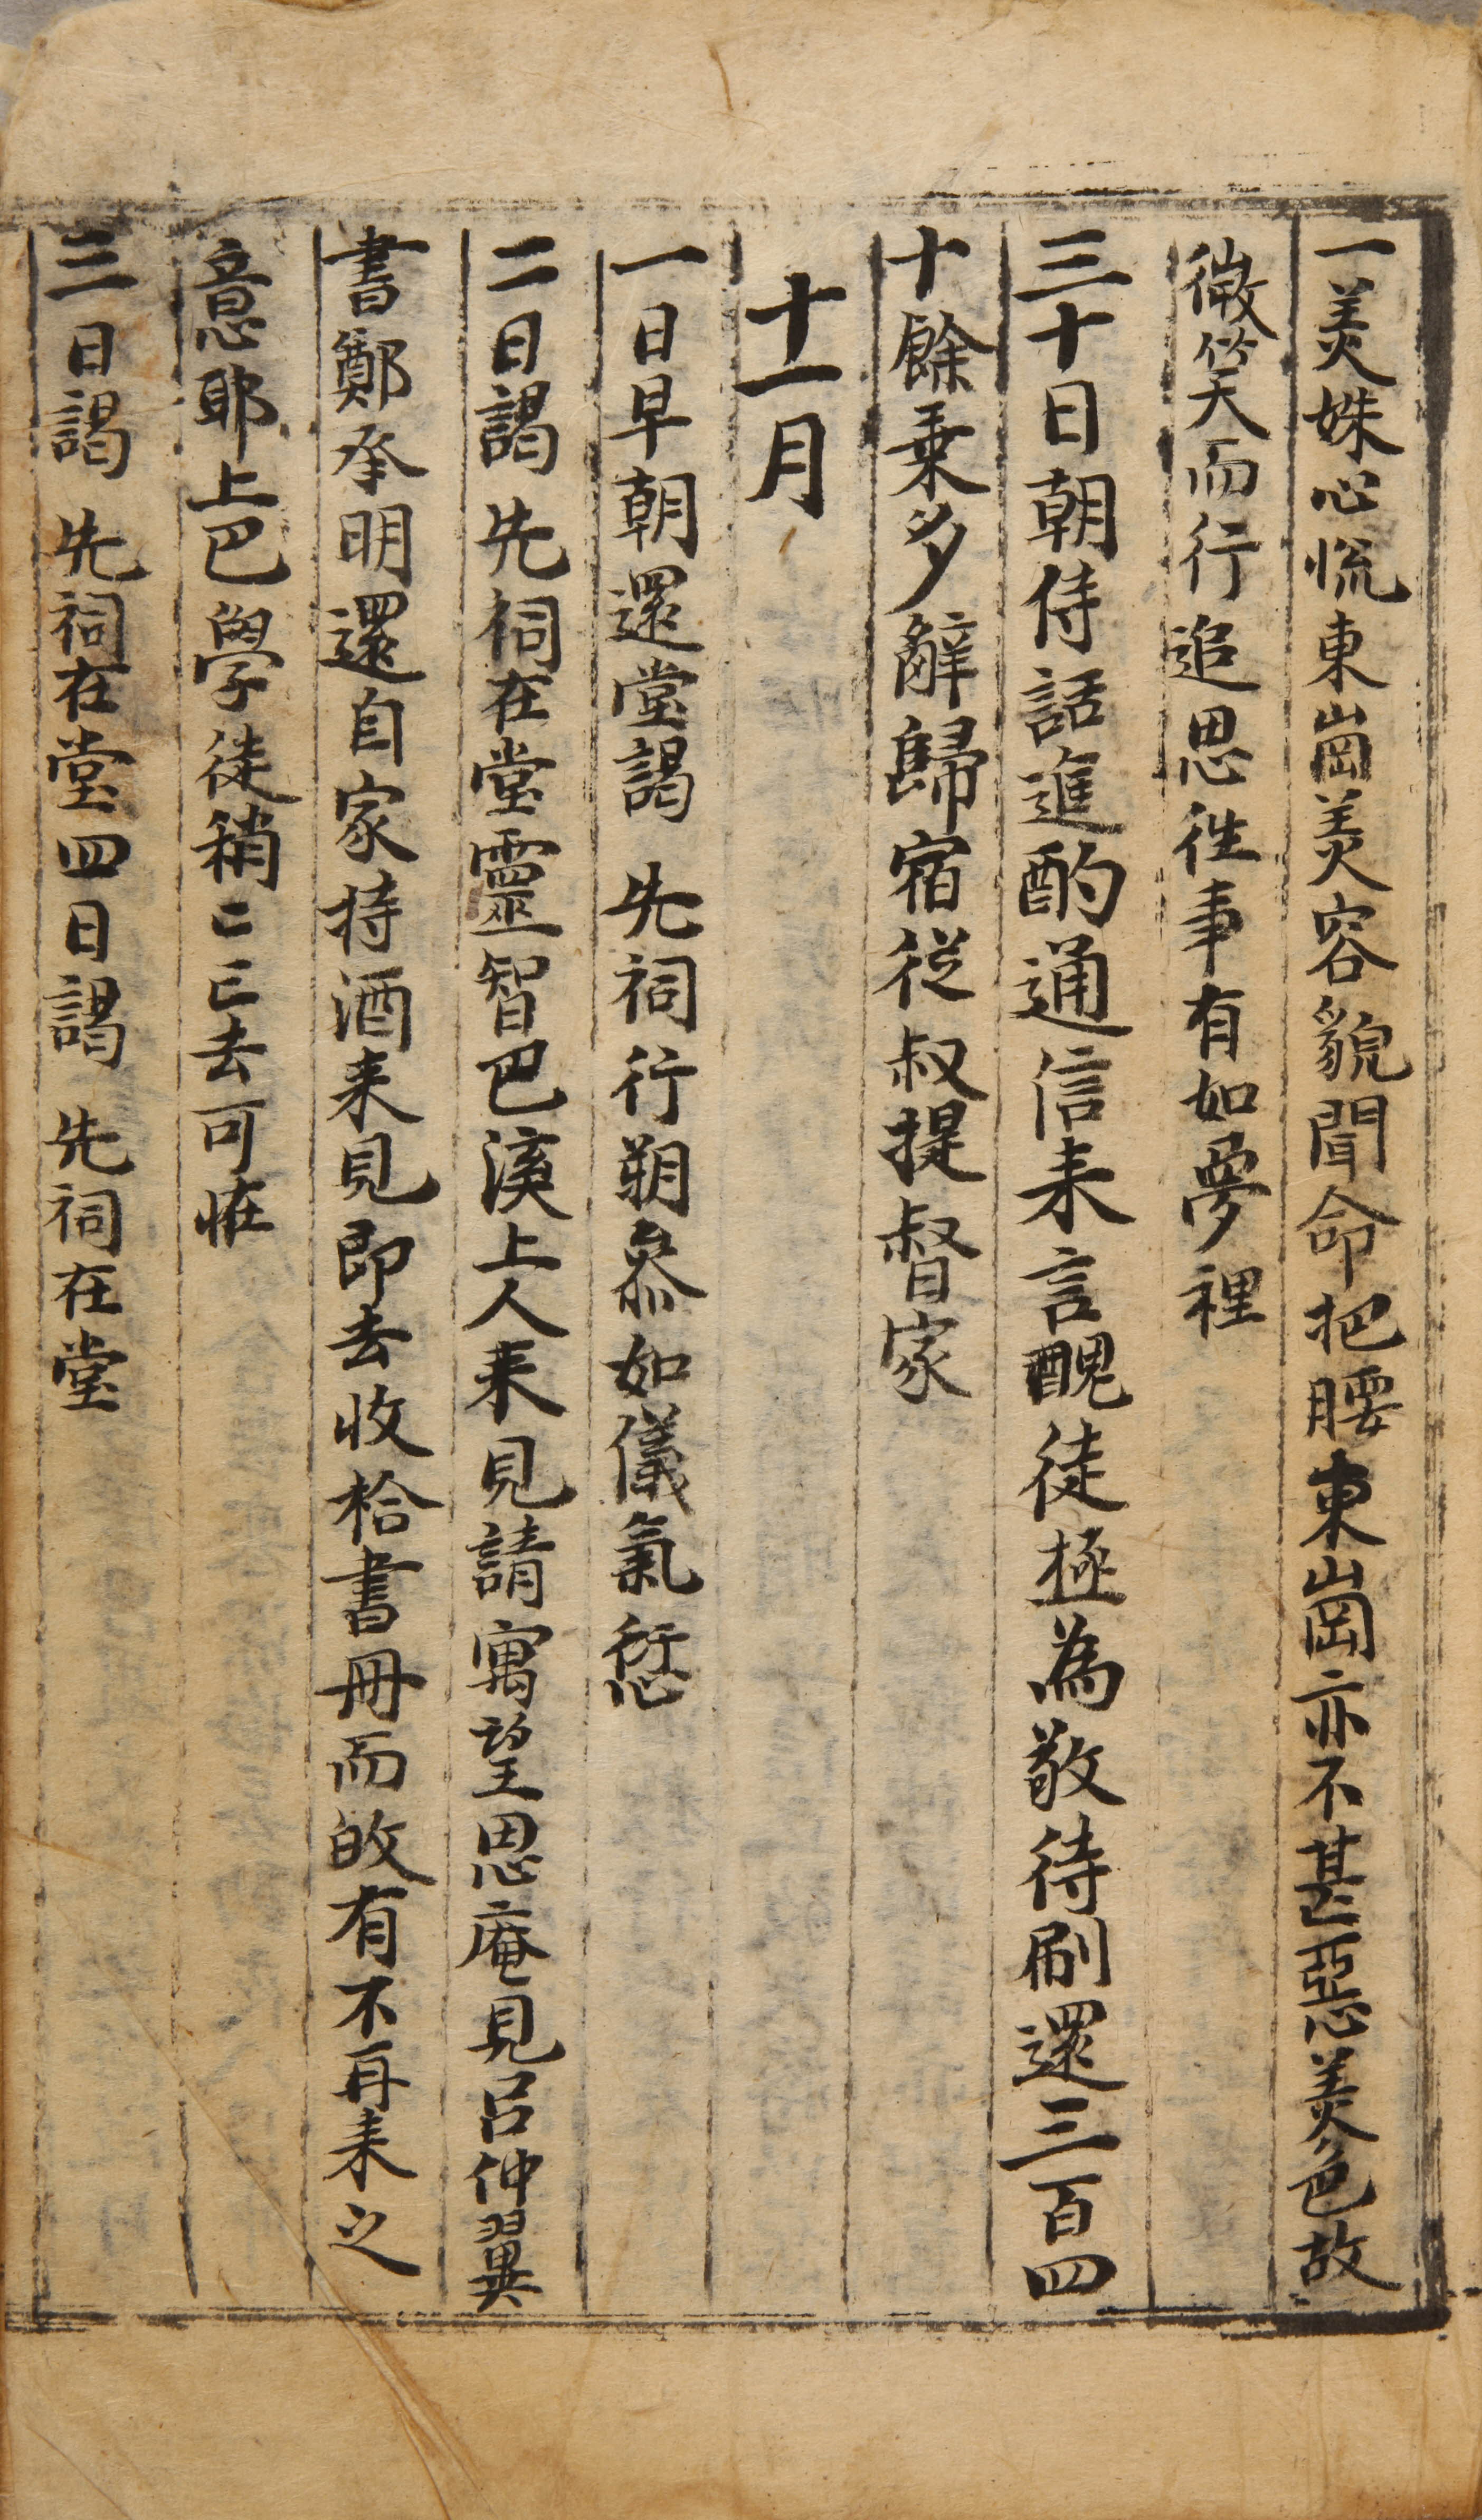 一美姝心慌東崗美容貌聞命把腰東崗亦不甚惡美色故
微笑而行追思徃事有如夢裡
三十日朝侍話進酌通信来言醜徒極為敬待刷還三百四
十餘乗夕辭歸宿從叔提督家
十一月
一日早朝還堂謁 先祠行朔叅如儀氣愆
二日謁 先祠在堂靈智巴溪上人来見請寓望思庵見呂仲翼
書鄭承明還自家持酒来見即去收拾書冊而故有不再来之
意耶上巴學徒稍〻亡去可恠
三日謁 先祠在堂四日謁 先祠在堂